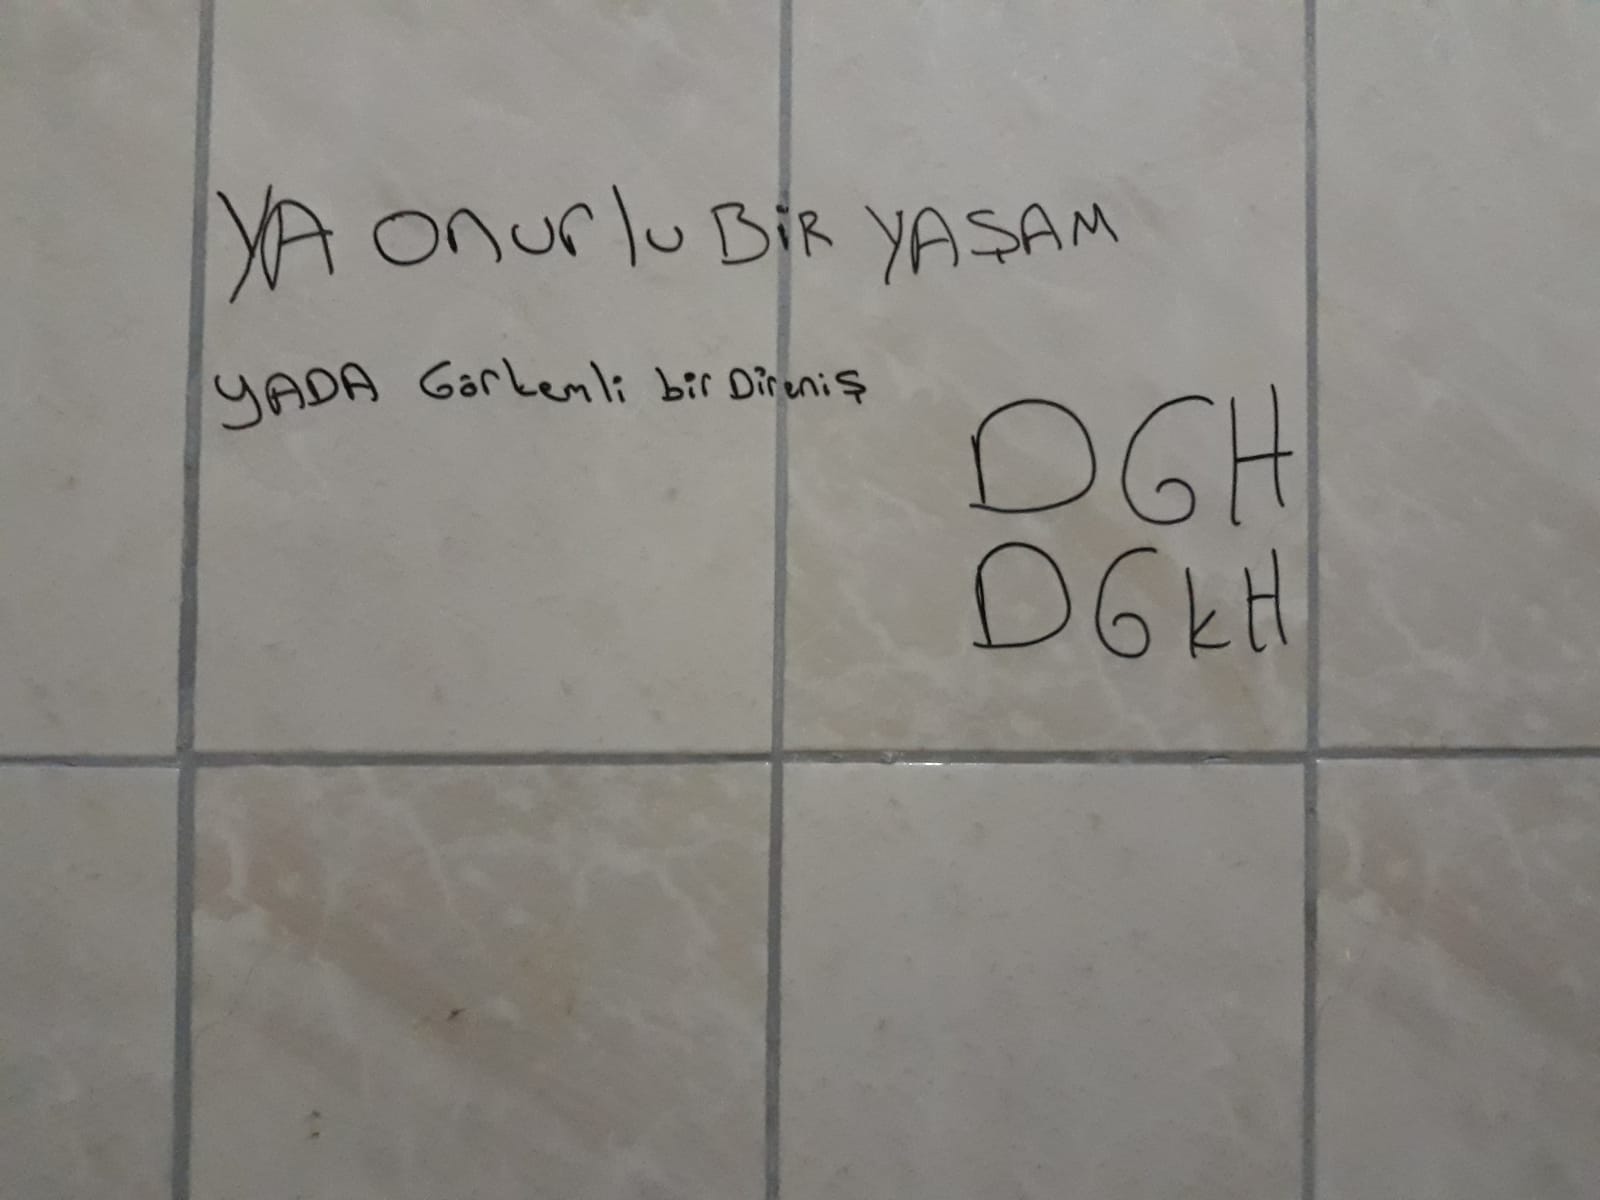 YA onurlu BiR YAŞAM
YADA Görkemli bir Direniş
DGH
DGkH